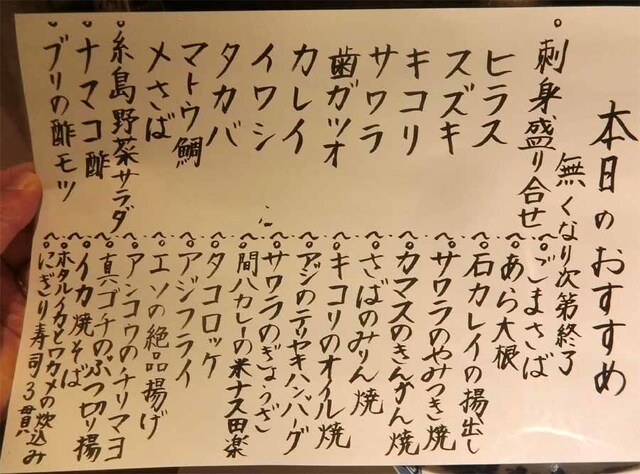 本日のおすすめ
無くなり次第終了
刺身盛り合せ
ヒラス
スズキ
キコリ
サワラ
歯ガツオ
カレイ
イワシ
タカバ
マトウ鯛
〆さば
糸島野菜サラダ
ナマコ酢
ブリの酢モツ
ごまさば
あら大根
石カレイの揚出し
サワラのやみつき焼
カマスのきんかん焼
さばのみりん焼
キコリのオイル焼
アジのテリヤキハンバーグ
サワラのぎょうざ
間八カレーの米ナス田楽
タコロッケ
アジフライ
エソの絶品揚げ
アンコウのチリマヨ
真ゴチのぶつ切り揚
イカ焼そば
ホタルイカとワカメの炊込み
にぎり寿司3貫